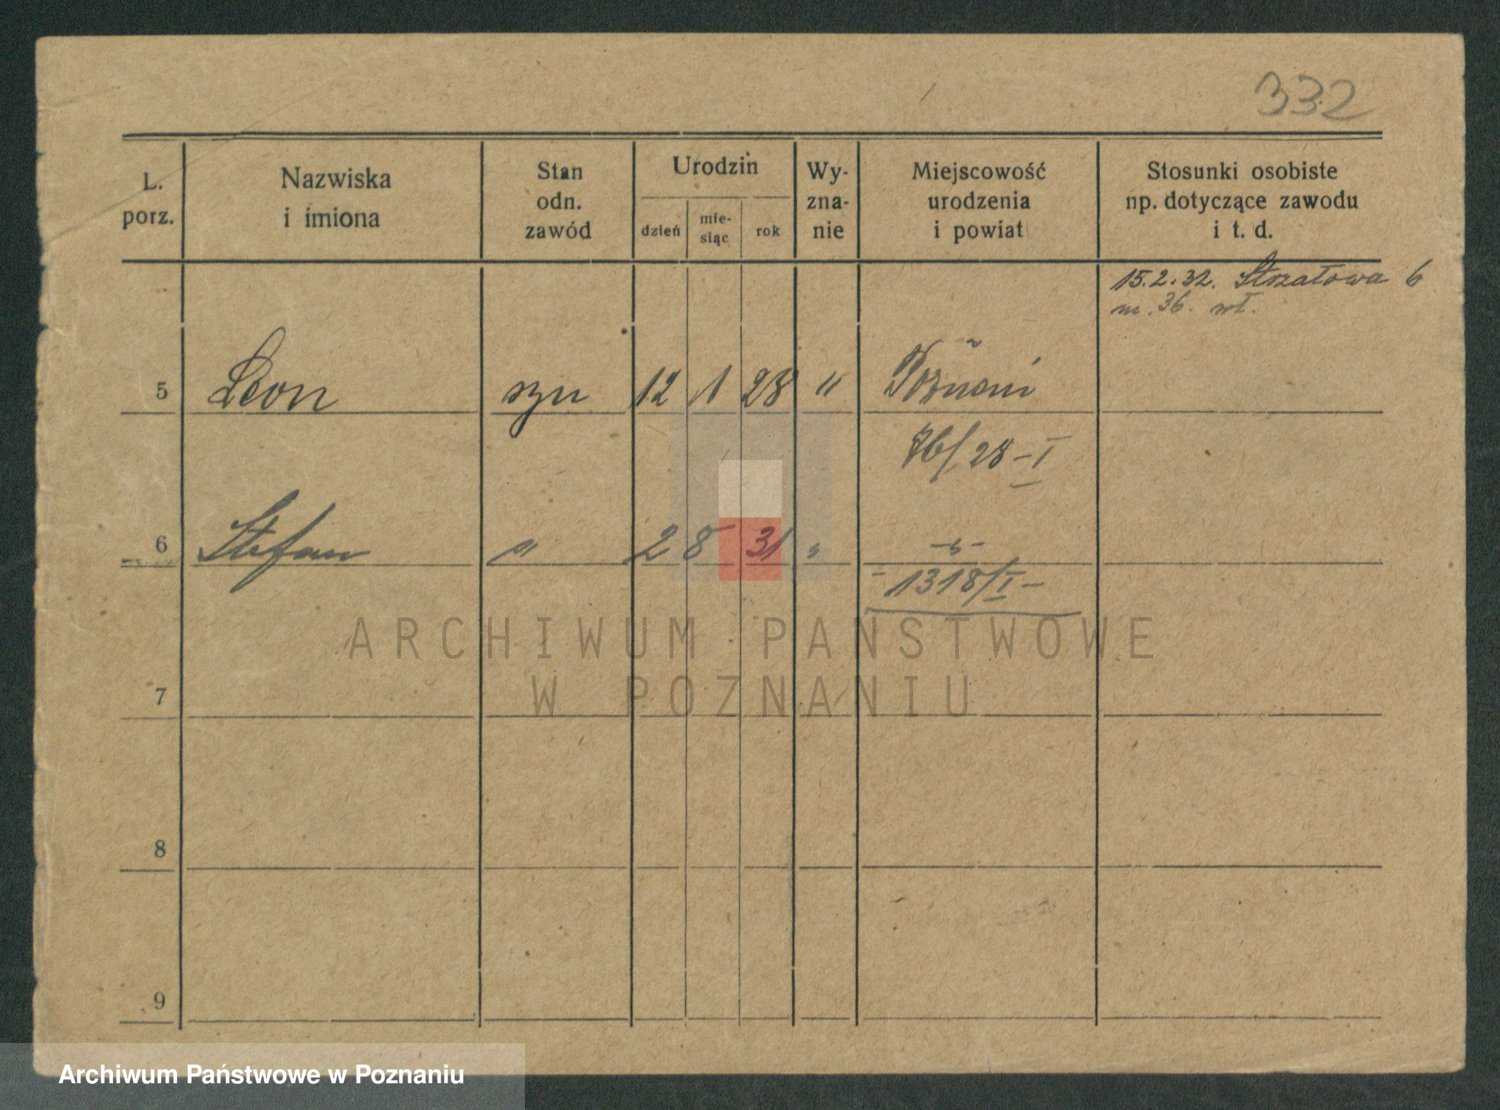 332
L. porz.
Nazwiska i imiona
Stan odn. zawód
Urodzin
dzień
mie-
siąc
rok
Wy-
zna-
nie
Miejscowość urodzenia i powiat
Stosunki osobiste
np. dotyczące zawodu
i t. d.
15.2.32. Strzałowa 6
m. 36. wł.
5 Leon syn 12 1 28 " Poznań
76/28-I
6 Stefan " 2 8 31 " -"-
-1318/I-
ARCHIWUM PAŃSTWOWE
W POZNANIU
7
8
9
Archiwum Państwowe w Poznaniu